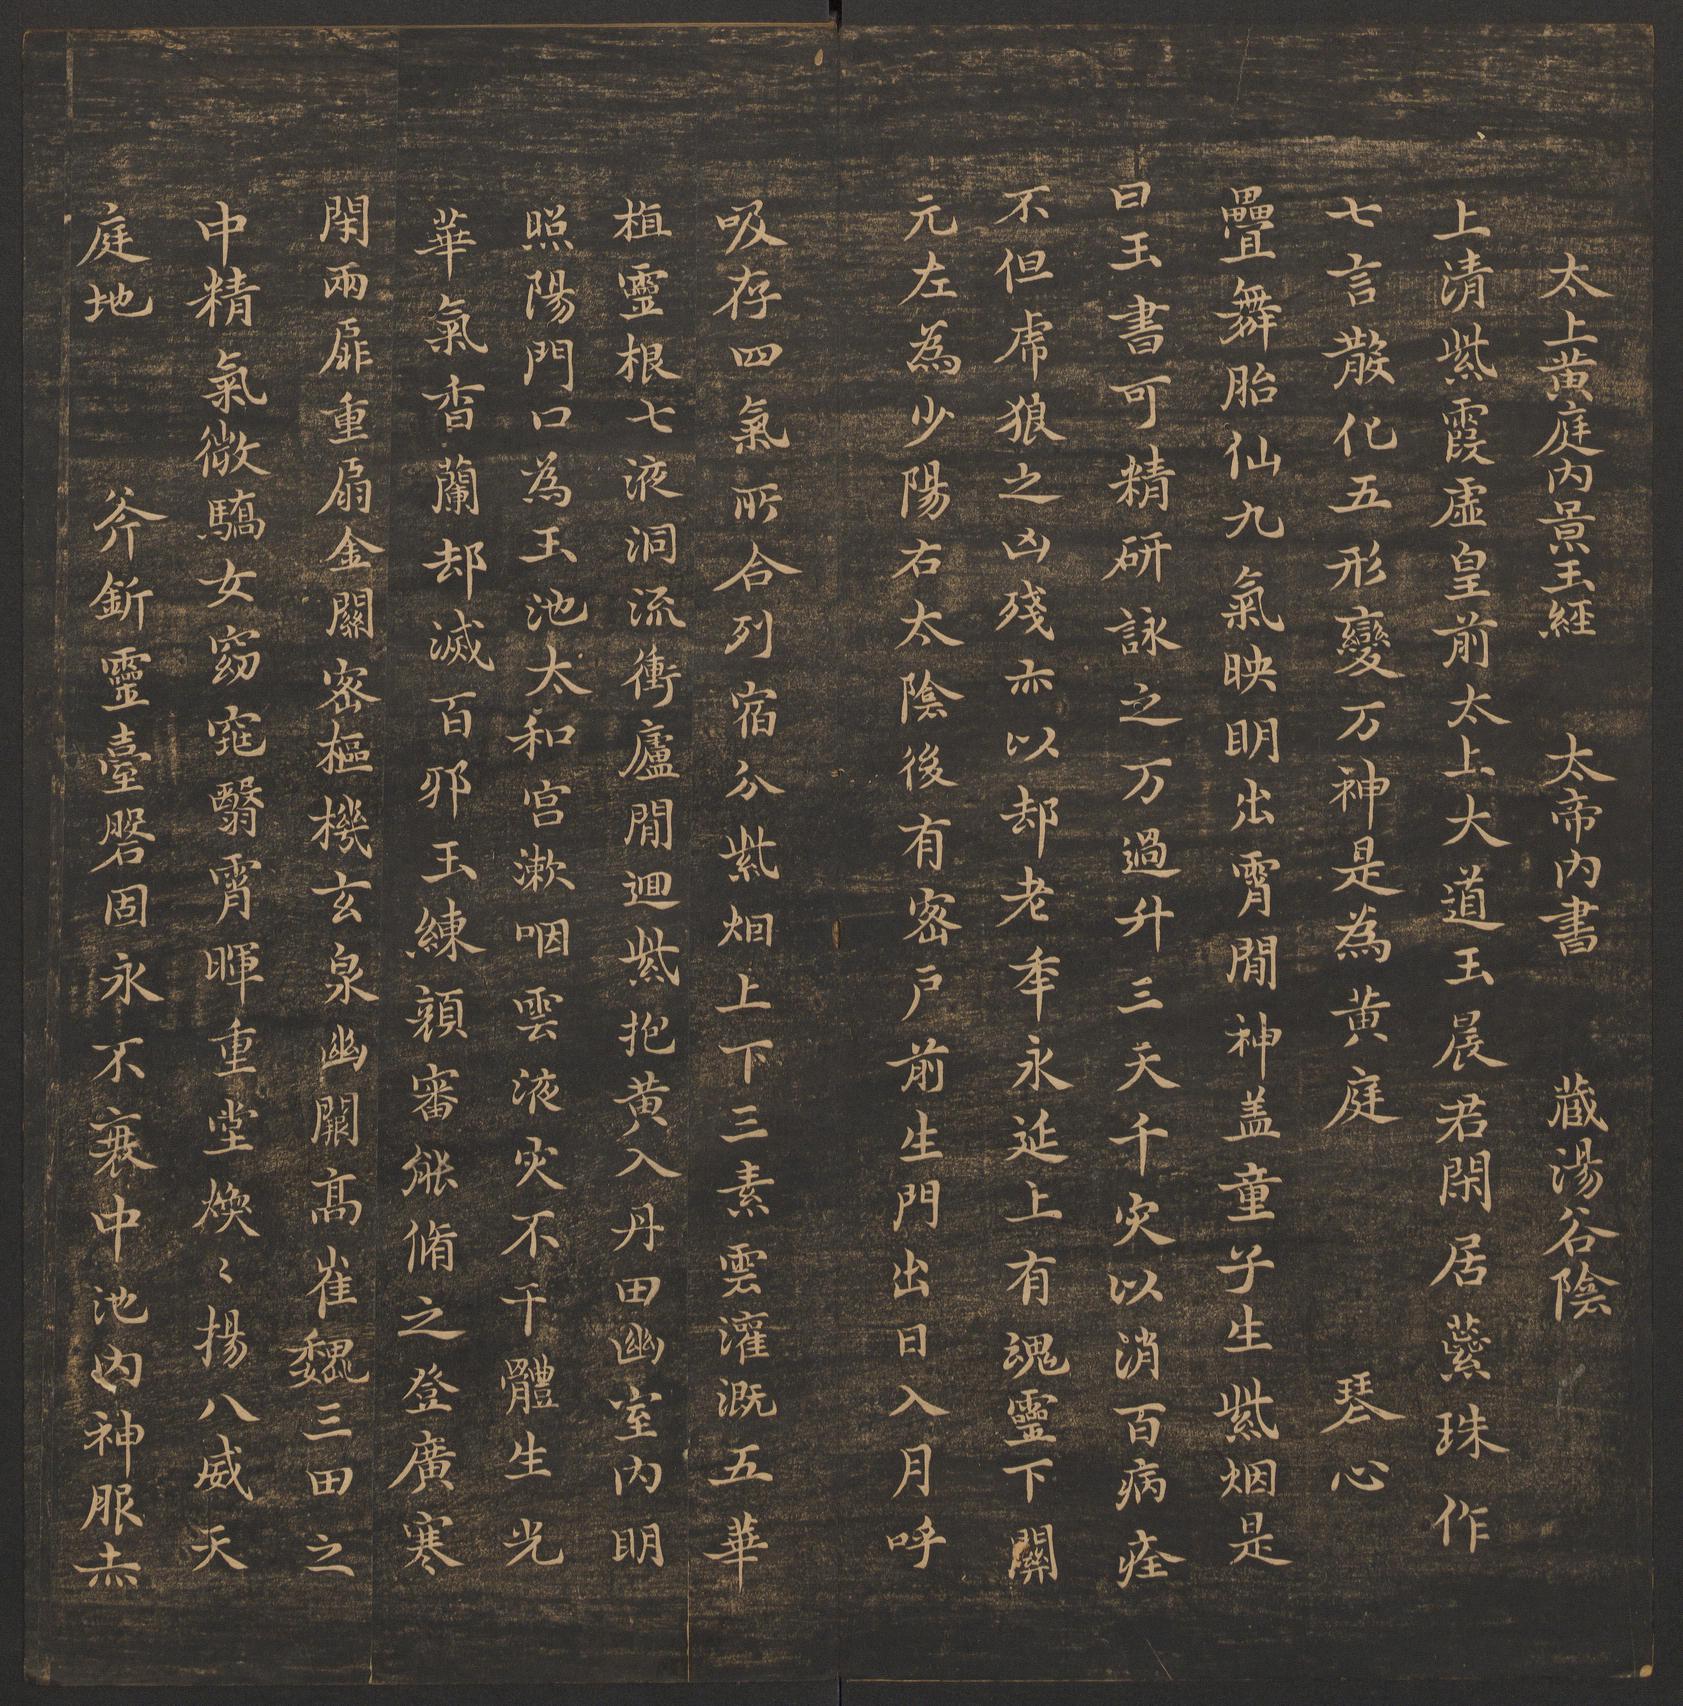 太上黄庭内景玉經 太帝内書 藏湯谷陰
上清紫霞虛皇前太上大道玉晨君閑居蘂珠作
七言散化五形變万神是為黄庭 琴心
疊舞胎仙九氣映明出霄間神盖童子生紫烟是
曰玉書可精研詠之万過升三天千灾以消百病痊
不但虎狼之凶殘亦以却老年永延上有魂靈下關
元左為少陽右太陰後有密戶前生門出日入月呼
吸存四氣所合列宿分紫烟上下三素雲灌溉五華
植靈根七液洞流衝廬間迴紫抱黄入丹田幽室内明
照陽門口為玉池太和宫漱咽雲液灾不干體生光
華氣香蘭却滅百邪玉練顏審能脩之登廣寒
閑兩扉重扇金關密樞機玄泉幽闕高崔巍三田之
中精氣微驕女窈窕翳霄暉重堂煥〻揚八威天
庭地 斧釿靈臺磐固永不衰中池内神服赤